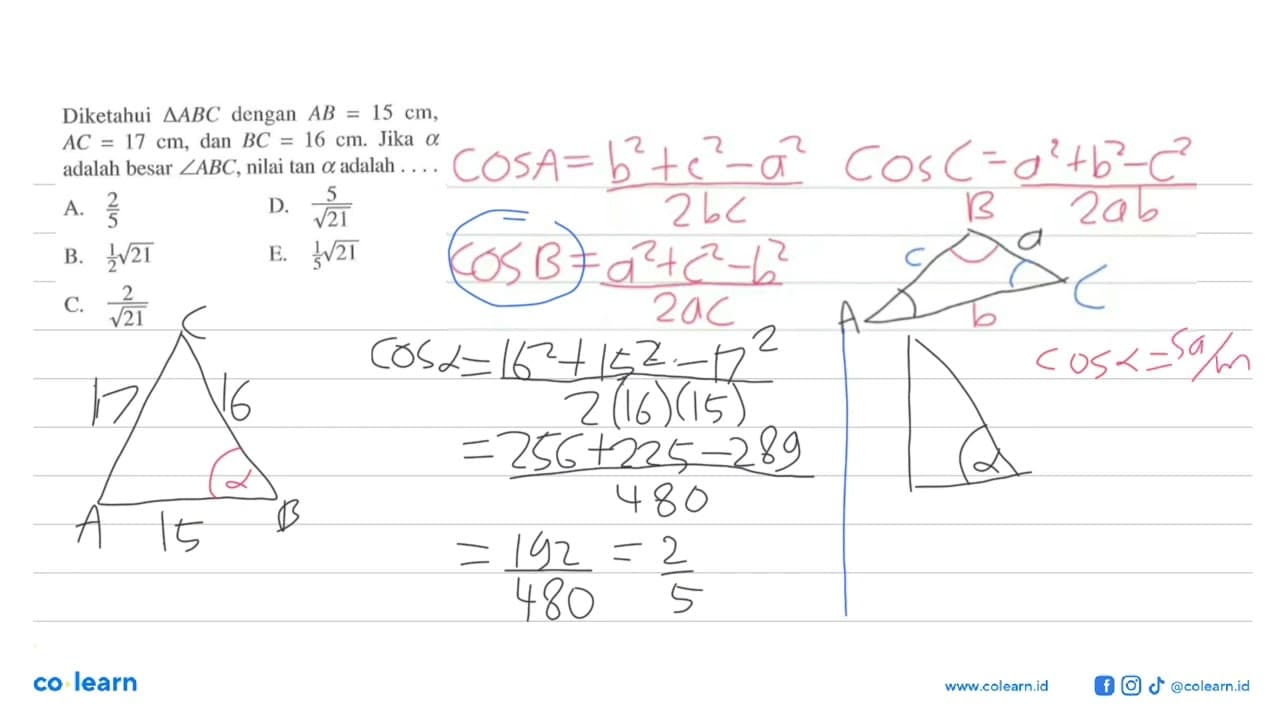 Diketahui ΔABC dengan AB = 15 cm,
AC = 17 cm, dan BC = 16 cm. Jika α
adalah besar ∠ABC, nilai tan α adalah . . . .
A. 2/5
B. 1/2 √21
C. 2/√21
D. 5/√21
E. 1/5 √21
COS A = b² + c² - a² / 2bc
COS C = a² + b² - c² / 2ab
=
COS B = a² + c² - b² / 2ac
B
a
c
C
A
b
C
17
16
α
A
15
B
cos α = 16² + 15² - 17² / 2(16)(15)
= 256 + 225 - 289 / 480
= 192/480 = 2/5
cos α = sa/m
α
co learn
www.colearn.id
@colearn.id